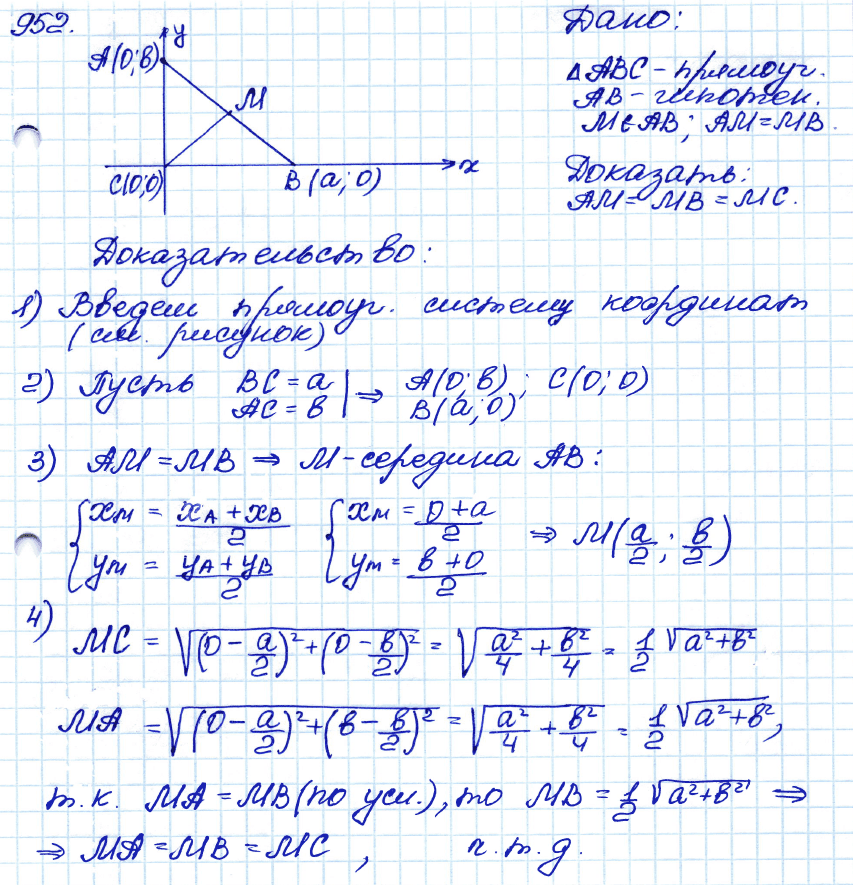 952.
y
A(0;в)
M
C(0;0)
B(a;0)
x
Дано:
△ABC - прямоуг.
AB - гипотен.
M∈AB; AM=MB.
Доказать:
AM = MB = MC.
Доказательство:
1) Введем прямоуг. систему координат
(см. рисунок)
2) Пусть BC = a | ⇒ A(0;в); C(0;0)
AC = в | B(a;0)
3) AM = MB ⇒ M - середина AB:
{ xм = (xA + xB)/2 { xм = (0 + a)/2 ⇒ M(a/2; в/2)
yм = (yA + yB)/2 yм = (в + 0)/2
4)
MC = √((0 - a/2)² + (0 - в/2)²) = √(a²/4 + в²/4) = 1/2 √(a² + в²)
MA = √((0 - a/2)² + (в - в/2)²) = √(a²/4 + в²/4) = 1/2 √(a² + в²),
т.к. MA = MB (по усл.), то MB = 1/2 √(a² + в²) ⇒
⇒ MA = MB = MC, ч.т.д.